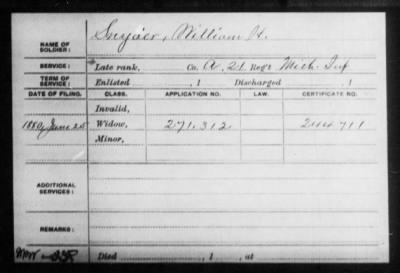 NAME OF SOLDIER: Snyder, William H.
SERVICE: Late rank, Co. A, 21 Reg't Mich. Inf
TERM OF SERVICE: Enlisted , 1 Discharged , 1
DATE OF FILING. CLASS. APPLICATION NO. LAW. CERTIFICATE NO.
Invalid,
1880, June 25 Widow, 271.312 244711
Minor,
ADDITIONAL SERVICES:
REMARKS:
Died , 1 , at